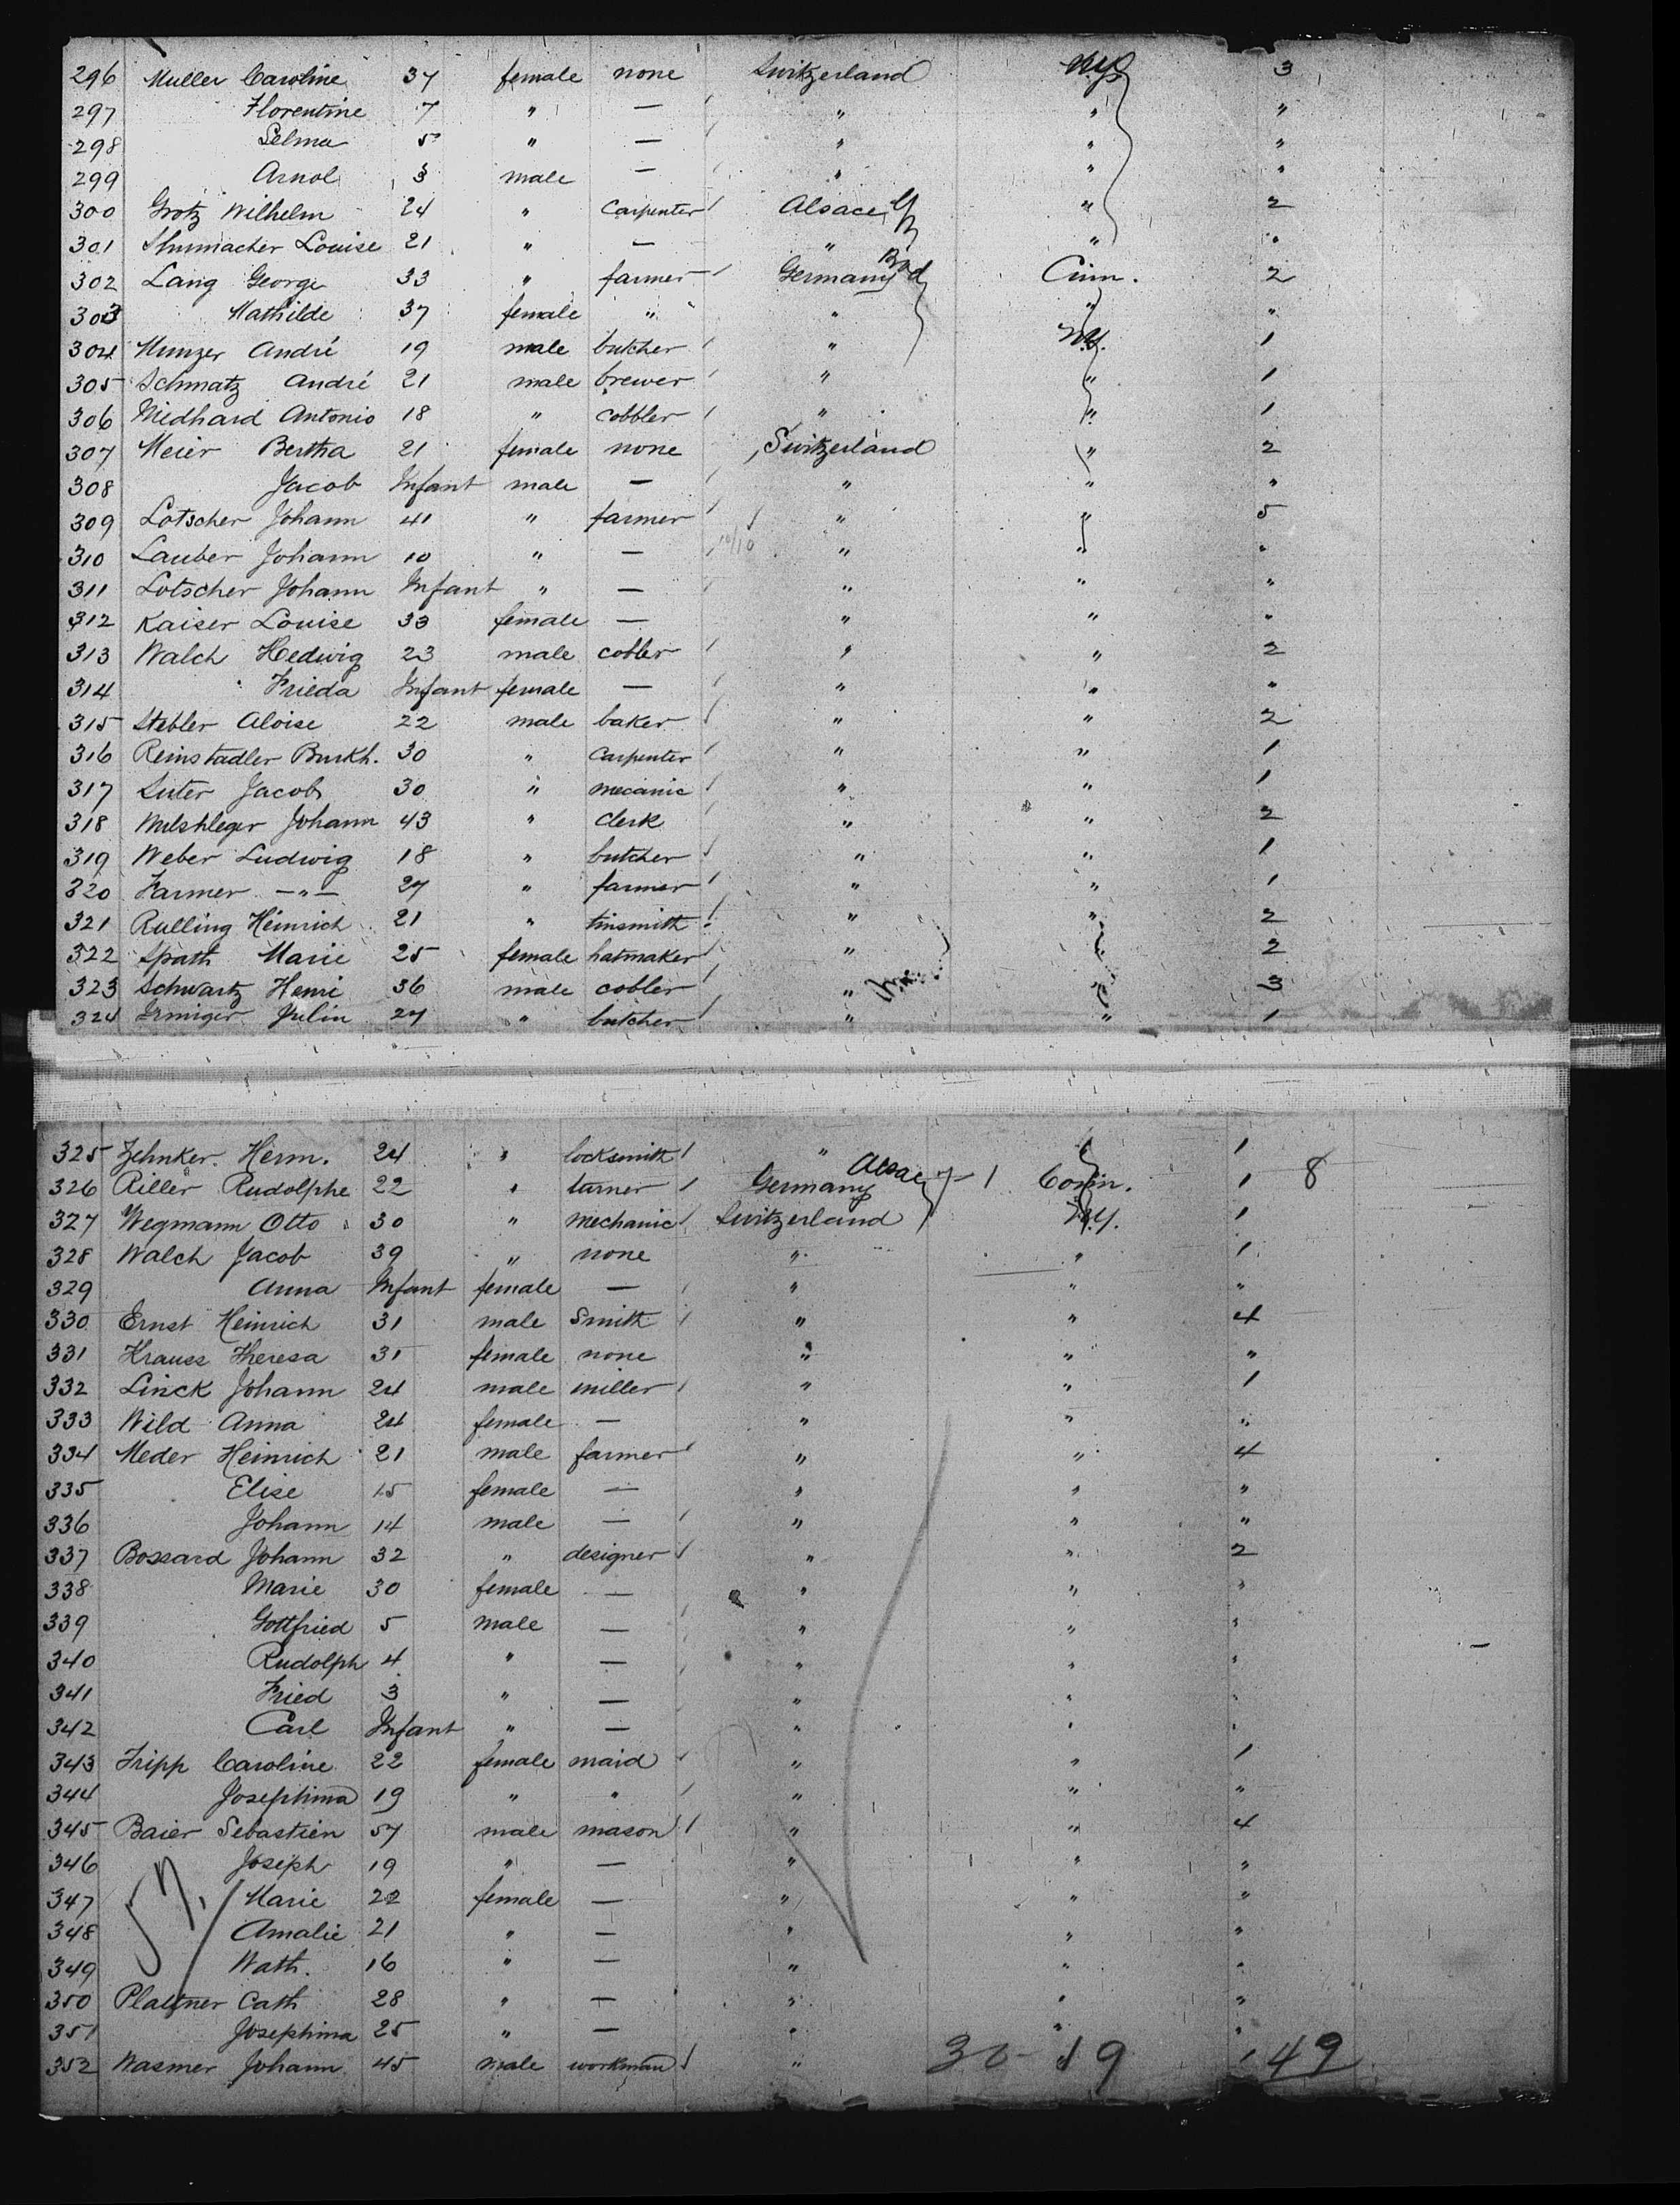 296 Muller Caroline 37 female none Switzerland N.Y. 3
297 Florentine 7 " — " " "
298 Selma 5 " — " " "
299 Arnol 3 male — " " "
300 Grotz Wilhelm 24 " carpenter Alsace " 2
301 Shumacher Louise 21 " — " " "
302 Lang George 33 " farmer Germany Bad Cinn. 2
303 Mathilde 37 female " " " "
304 Munzer André 19 male butcher " N.Y. 1
305 Schmatz André 21 male brewer " " 1
306 Midhard Antonio 18 " cobbler " " 1
307 Meier Bertha 21 female none Switzerland " 2
308 Jacob Infant male — " " "
309 Lotscher Johann 41 " farmer " " 5
310 Lauber Johann 10 " — 10/10 " " "
311 Lotscher Johann Infant " — " " "
312 Kaiser Louise 33 female — " " "
313 Walch Hedwig 23 male cobler " " 2
314 " Frieda Infant female — " " "
315 Stebler Aloise 22 male baker " " 2
316 Reinstadler Burkh. 30 " carpenter " " 1
317 Suter Jacob 30 " mecanic " " 1
318 Johann 43 " clerk " " 2
319 Weber Ludwig 18 " butcher " " 1
320 Farmer — " — 27 " farmer " " 1
321 Rulling Heinrich 21 " tinsmith " " 2
322 Spath Marie 25 female hatmaker " " 2
323 Schwartz Henri 36 male cobler " " 3
324 Irmiger Julin 27 " butcher " " 1
325 Zehnker. Herm. 24 " locksmith " " 1
326 Riller Rudolphe 22 " turner Germany Alsac 7-1 Conn. 1 8
327 Wegmann Otto 30 " mechanic Switzerland N.Y. 1
328 Walch Jacob 39 " none " " 1
329 Anna Infant female — " " "
330 Ernst Heinrich 31 male Smith " " 4
331 Krauss Theresa 31 female none " " "
332 Linck Johann 24 male miller " " 1
333 Wild Anna 24 female — " " "
334 Meder Heinrich 21 male farmer " " 4
335 Elise 15 female — " " "
336 Johann 14 male — " " "
337 Bossard Johann 32 " designer " " 2
338 Marie 30 female — " " "
339 Gottfried 5 male — " " "
340 Rudolph 4 " — " " "
341 Fried 3 " — " " "
342 Carl Infant " — " " "
343 Fripp Caroline 22 female maid " " 1
344 Josephina 19 " " " " "
345 Baier Sebastien 57 male mason " " 4
346 Joseph 19 " — " " "
347 Marie 22 female — " " "
348 Amalie 21 " — " " "
349 Wath. 16 " — " " "
350 Plattner Cath 28 " — " " "
351 Josephina 25 " — " " "
352 Wasmer Johann 45 male workman " 30- 19 149